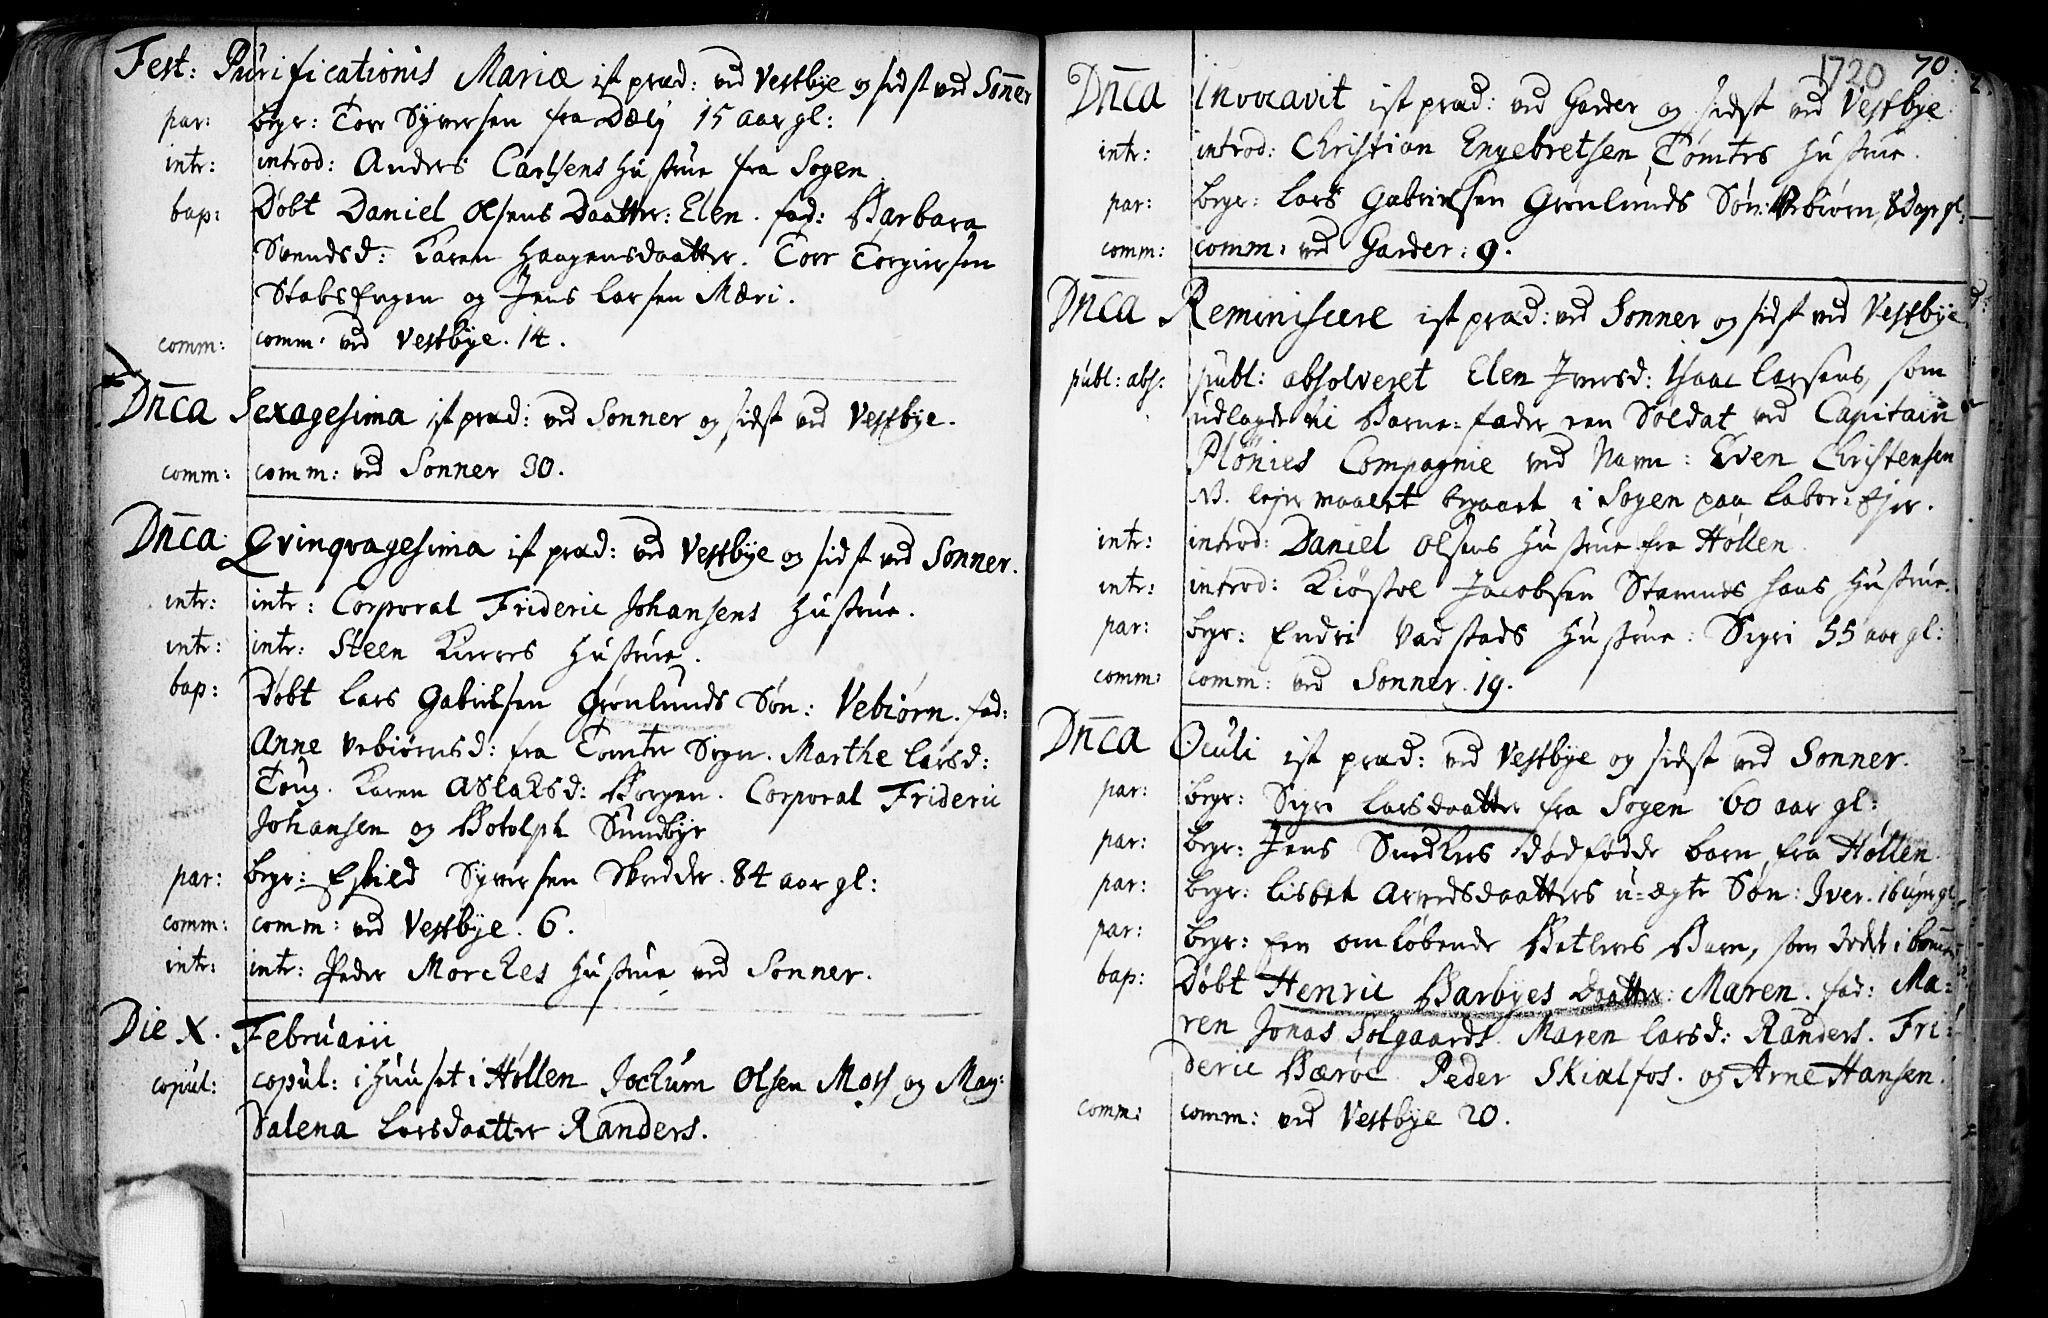 Fest: Purificationis Mariæ ist præd: ved Vestbye og sidst ved Soñer
par: begr: Tore Syversen fra Dælj 15 aar gl:
intr: introd: Anders Carlsens Hustrue fra Sogen
bap: Døbt Daniel Olsens Daatter: Elen. fad: Barbara
Svendsd: Karen Haagensdaatter. Tore Torgiersen
StabsEngen og Jens Larsen Mæri.
comm: comm: ved Vestbye. 14.
Dn̄ca Sexagesima ist præd: ved Sonner og sidst ved Vestbye.
comm: comm: ved Sonner 30.
Dn̄ca Qvinqvagesima ist præd: ved Vestbye og sidst ved Sonner.
intr: intr: Corporal Frideric Johansens Hustrue.
intr: intr: Steen Hustrue.
bap: Døbt Lars Gabrielsen Grønlunds Søn: Vebiørn. fad:
Anne Vebiørnsd: fra Tomter Sogn. Marthe Larsd:
Toug. Karen Aslaksd: Borgen. Corporal Frideric
Johansen og Botolph Sundbye
par: begr: Eskild Syversen Skredder. 84 aar gl:
comm: comm: ved Vestbye. 6.
intr: intr: Peder Morckes Hustrue ved Sonner.
Die X. Februarii
copul: copul: i Huuset i Høllen Jochum Olsen Mors og Mag:
dalena Larsdaatter Randers.
1720 70.
Dn̄ca Invocavit ist præd: ved Garder og sidst ved Vestbye
intr: introd: Christian Engebretsen Tømtes Hustrue.
par: begr: Lars Gabrielsen Grønlunds Søn: Vebiørn, 8 dage gl:
comm: comm: ved Garder: 9.
Dn̄ca Reminiscere ist præd: ved Sonner og sidst ved Vestbye
publ: abs: publ: absolveret Elen Iversd: Isaac Larsens, som
udlagde til Barne-fader een Soldat ved Capitain
Plönies Compagnie ved Navn: Even Christensen
NB. lejermaalet begaaet i Sogen paa Labor: Ejer.
intr: introd: Daniel Olsens Hustrue fra Høllen
intr: introd: Kiøstol Jacobsen Stamnes hans Hustrue.
par: begr: Endri Vadstads Hustrue: Sigri 55 aar gl:
comm: comm: ved Sonner. 19.
Dn̄ca Oculi ist præd: ved Vestbye og sidst ved Sonner.
par: begr: Sigri Larsdaatter fra Sogen 60 aar gl:
par: begr: Jens Snedkers dødfødde barn fra Høllen.
par: begr: Lisbet Arvedsdaatters u-ægte Søn: Iver. 16 uger gl:
par: begr: Een omløbende Betlers Barn, som døde i
bap: Døbt Henric Barbyes Daatter: Maren. fad: Ma=
ren Jonas Solgaards. Maren Larsd: Randers. Fri=
deric Bærøe. Peder Skialfos. og Arne Hansen.
comm: comm: ved Vestbye 20.